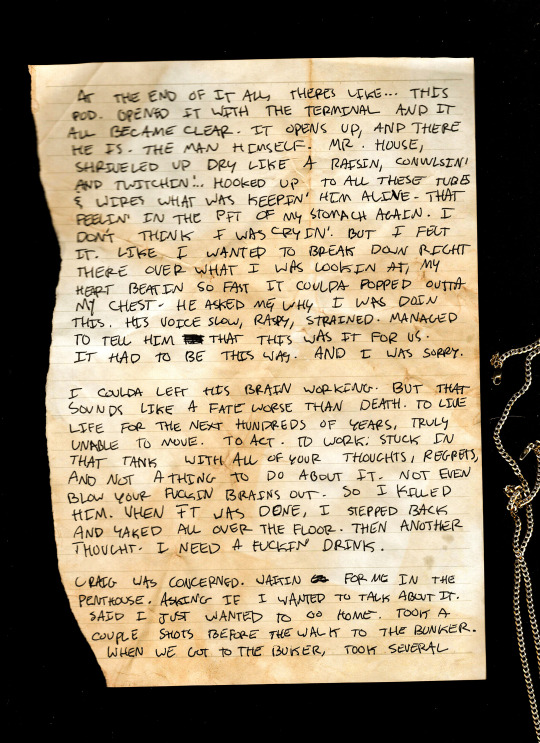 AT THE END OF IT ALL, THERES LIKE... THIS
POD. OPENED IT WITH THE TERMINAL AND IT
ALL BECAME CLEAR. IT OPENS UP, AND THERE
HE IS. THE MAN HIMSELF. MR. HOUSE,
SHRIVELED UP DRY LIKE A RAISIN, CONVULSIN'
AND TWITCHIN'... HOOKED UP TO ALL THESE TUBES
& WIRES WHAT WAS KEEPIN' HIM ALIVE. THAT
FEELIN' IN THE PIT OF MY STOMACH AGAIN. I
DON'T THINK I WAS CRYIN'. BUT I FELT
IT. LIKE I WANTED TO BREAK DOWN RIGHT
THERE OVER WHAT I WAS LOOKIN AT, MY
HEART BEATIN SO FAST IT COULDA POPPED OUTTA
MY CHEST. HE ASKED ME WHY I WAS DOIN
THIS. HIS VOICE SLOW, RASPY, STRAINED. MANAGED
TO TELL HIM THAT THIS WAS IT FOR US.
IT HAD TO BE THIS WAY. AND I WAS SORRY.
I COULDA LEFT HIS BRAIN WORKING. BUT THAT
SOUNDS LIKE A FATE WORSE THAN DEATH. TO LIVE
LIFE FOR THE NEXT HUNDREDS OF YEARS, TRULY
UNABLE TO MOVE. TO ACT. TO WORK. STUCK IN
THAT TANK WITH ALL OF YOUR THOUGHTS, REGRETS,
AND NOT A THING TO DO ABOUT IT. NOT EVEN
BLOW YOUR FUCKIN BRAINS OUT. SO I KILLED
HIM. WHEN IT WAS DONE, I STEPPED BACK
AND YAKED ALL OVER THE FLOOR. THEN ANOTHER
THOUGHT. I NEED A FUCKIN' DRINK.
CRAIG WAS CONCERNED. WAITIN FOR ME IN THE
PENTHOUSE. ASKING IF I WANTED TO TALK ABOUT IT.
SAID I JUST WANTED TO GO HOME. TOOK A
COUPLE SHOTS BEFORE THE WALK TO THE BUNKER.
WHEN WE GOT TO THE BUKER, TOOK SEVERAL